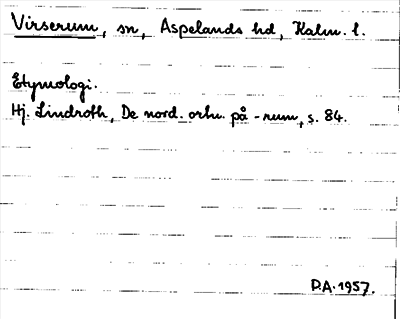 Virserum, sn, Aspelands hd, Kalm. l.
Etymologi.
Hj. Lindroth, De nord. ortn. på -rum, s. 84.
D.A. 1957.